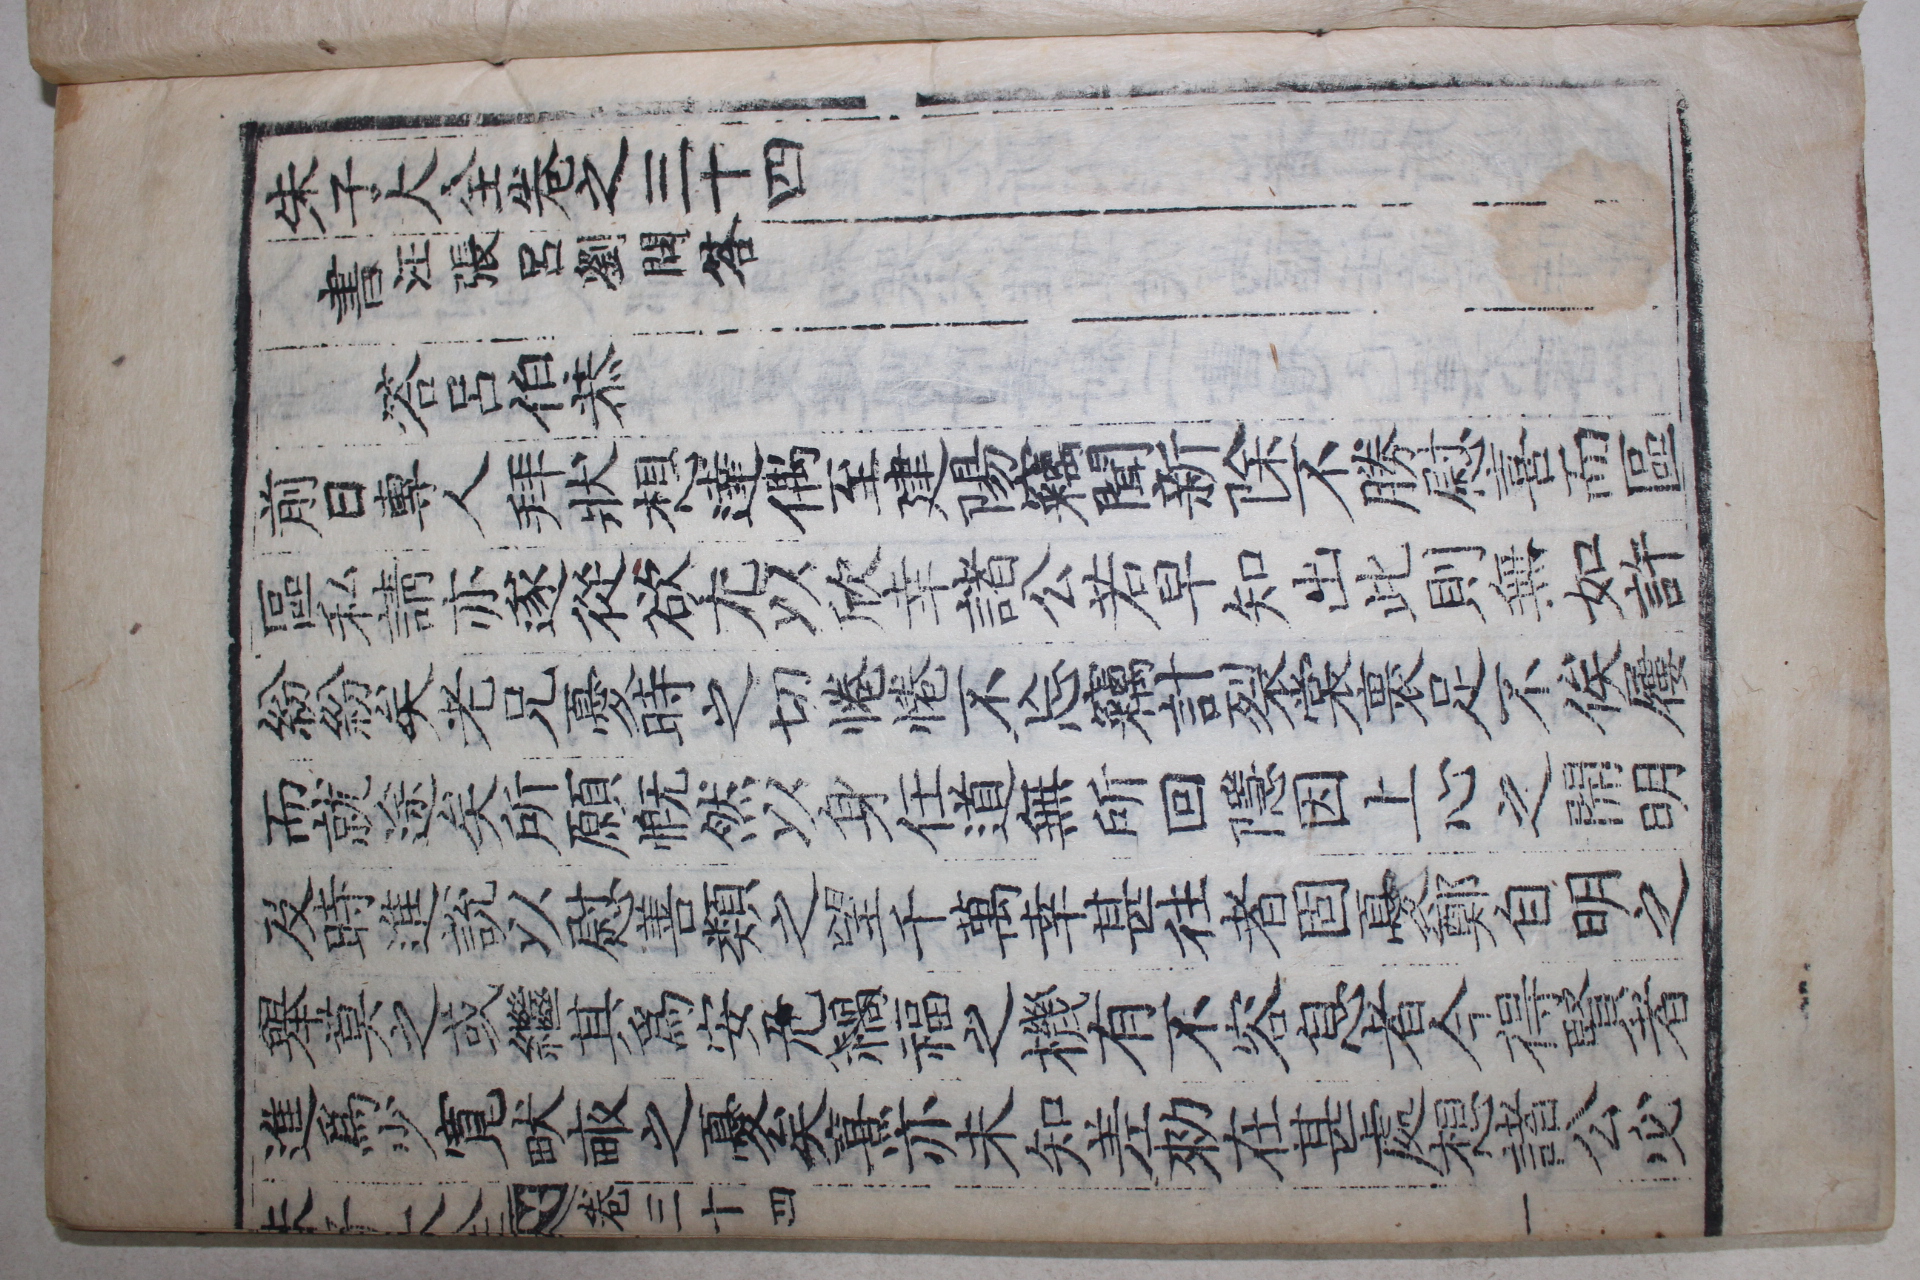 朱子大全卷之三十四
書汪張呂劉問答
答呂伯恭
前日專人拜狀想達偶至建陽竊聞新除不勝慰喜而區
區私請亦遂從欲尤以欣幸諸公若早知出此則無如許
紛紛矣老兄憂時之切惓惓不忘竊計裂裳裹足不俟屨
而就塗矣所願慨然以身任道無所回隱因上心之開明
及時進說以慰善類之望千萬幸甚往者固憂鄭自明之
莫之或繼其爲安危禍福之機有不容息者今得賢者
進爲少寬畎畝之憂矣熹亦未知差勑在甚處想諸公必
朱子大全 卷三十四 一